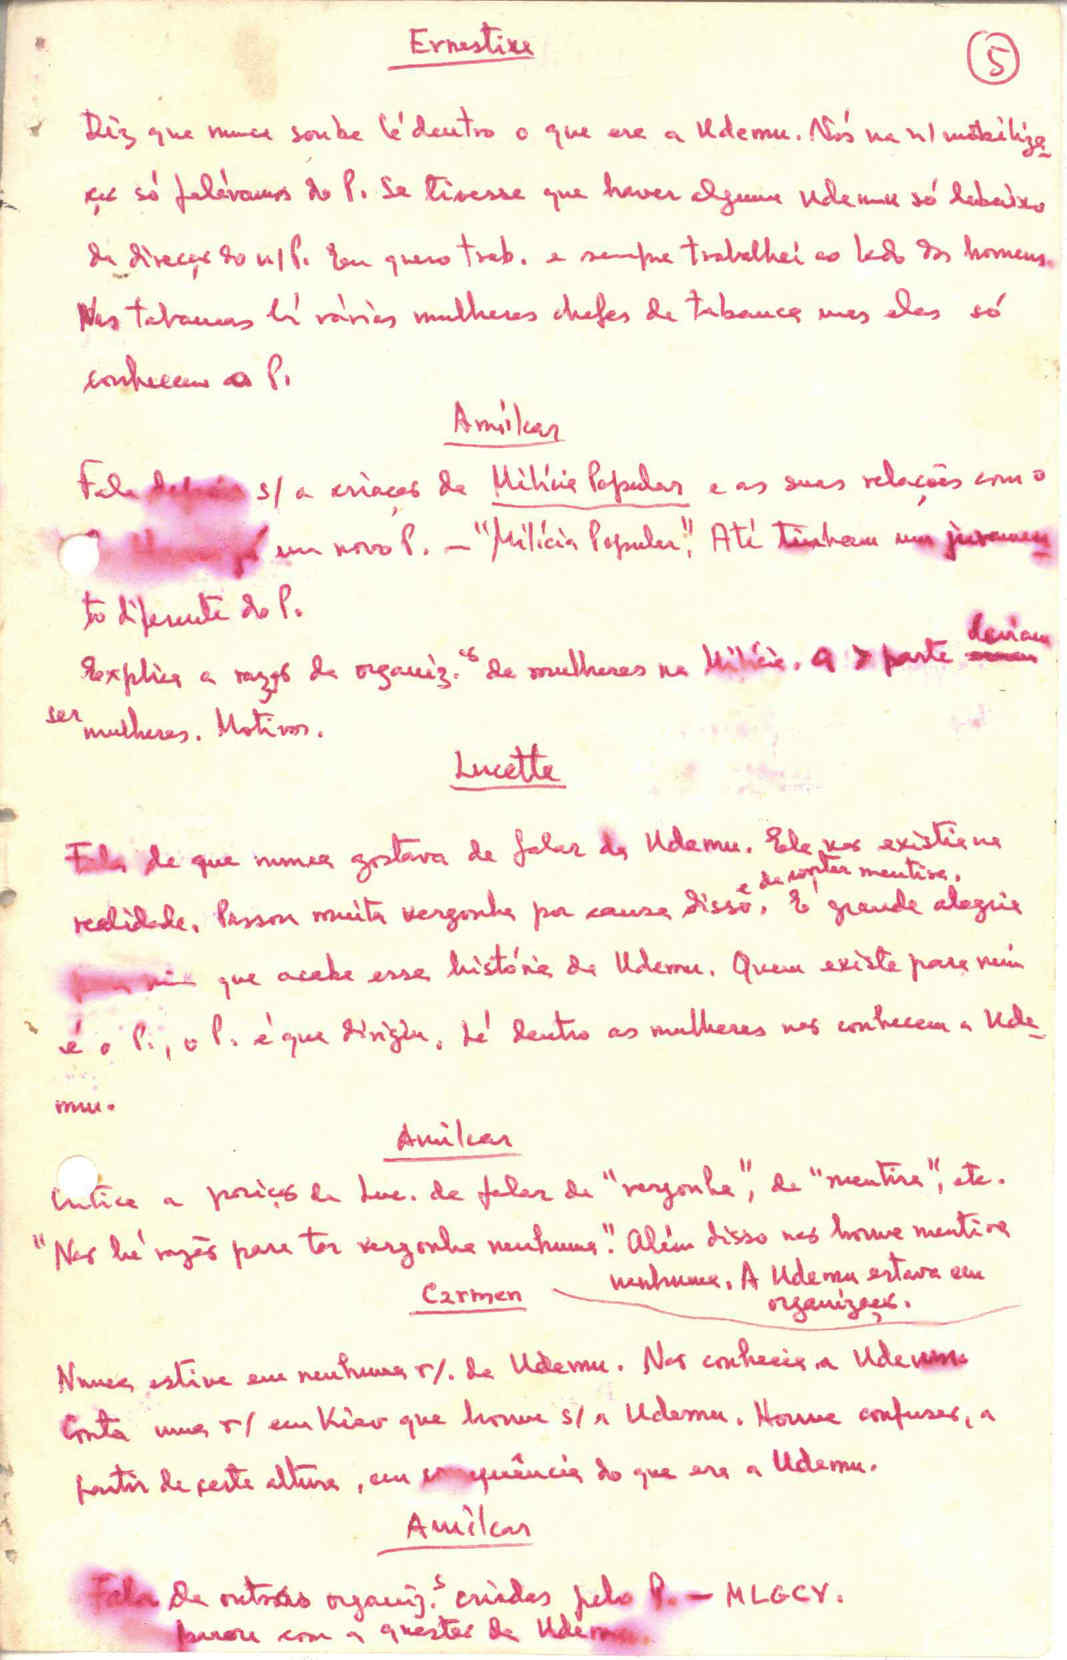 5
Ernestina
Diz que nunca soube lá dentro o que era a Udemu. Nós na n/ mobiliza-
ção só falávamos do P. Se tivesse que haver alguma Udemu só debaixo
da direcção do n/ P. Eu quero trab. e sempre trabalhei ao lado dos homens.
Nas tabancas há várias mulheres chefes de tabanca mas elas só
conhecem o P.
Amílcar
Fala depois s/ a criação da Milícia Popular e as suas relações com o
um novo P. — "Milícia Popular". Até tinham um juramen
to diferente do P.
Explica a razão da organiz.ão de mulheres na Milícia. a > parte deviam
ser mulheres. Motivos.
Lucette
Fala de que nunca gostava de falar da Udemu. Ela não existia na
realidade. Passou muita vergonha por causa disso, e de contar mentira. É grande alegria
para mim que acabe essa história da Udemu. Quem existe para mim
é o P., o P. é que dirigiu. Lá dentro as mulheres não conhecem a Ude-
mu.
Amílcar
Critica a posição da Luc. de falar de "vergonha", de "mentira", etc.
"Não há razão para ter vergonha nenhuma". Além disso não houve mentira
nenhuma. A Udemu estava em
organização.
Carmen
Nunca estive em nenhuma r/. da Udemu. Não conhecia a Udemu.
Conta uma r/ em Kiev que houve s/ a Udemu. Houve confusão, a
partir de certa altura, em consequência do que era a Udemu.
Amílcar
Fala de outras organiz.s criadas pelo P. — MLGCV.
com a questão da Udemu.